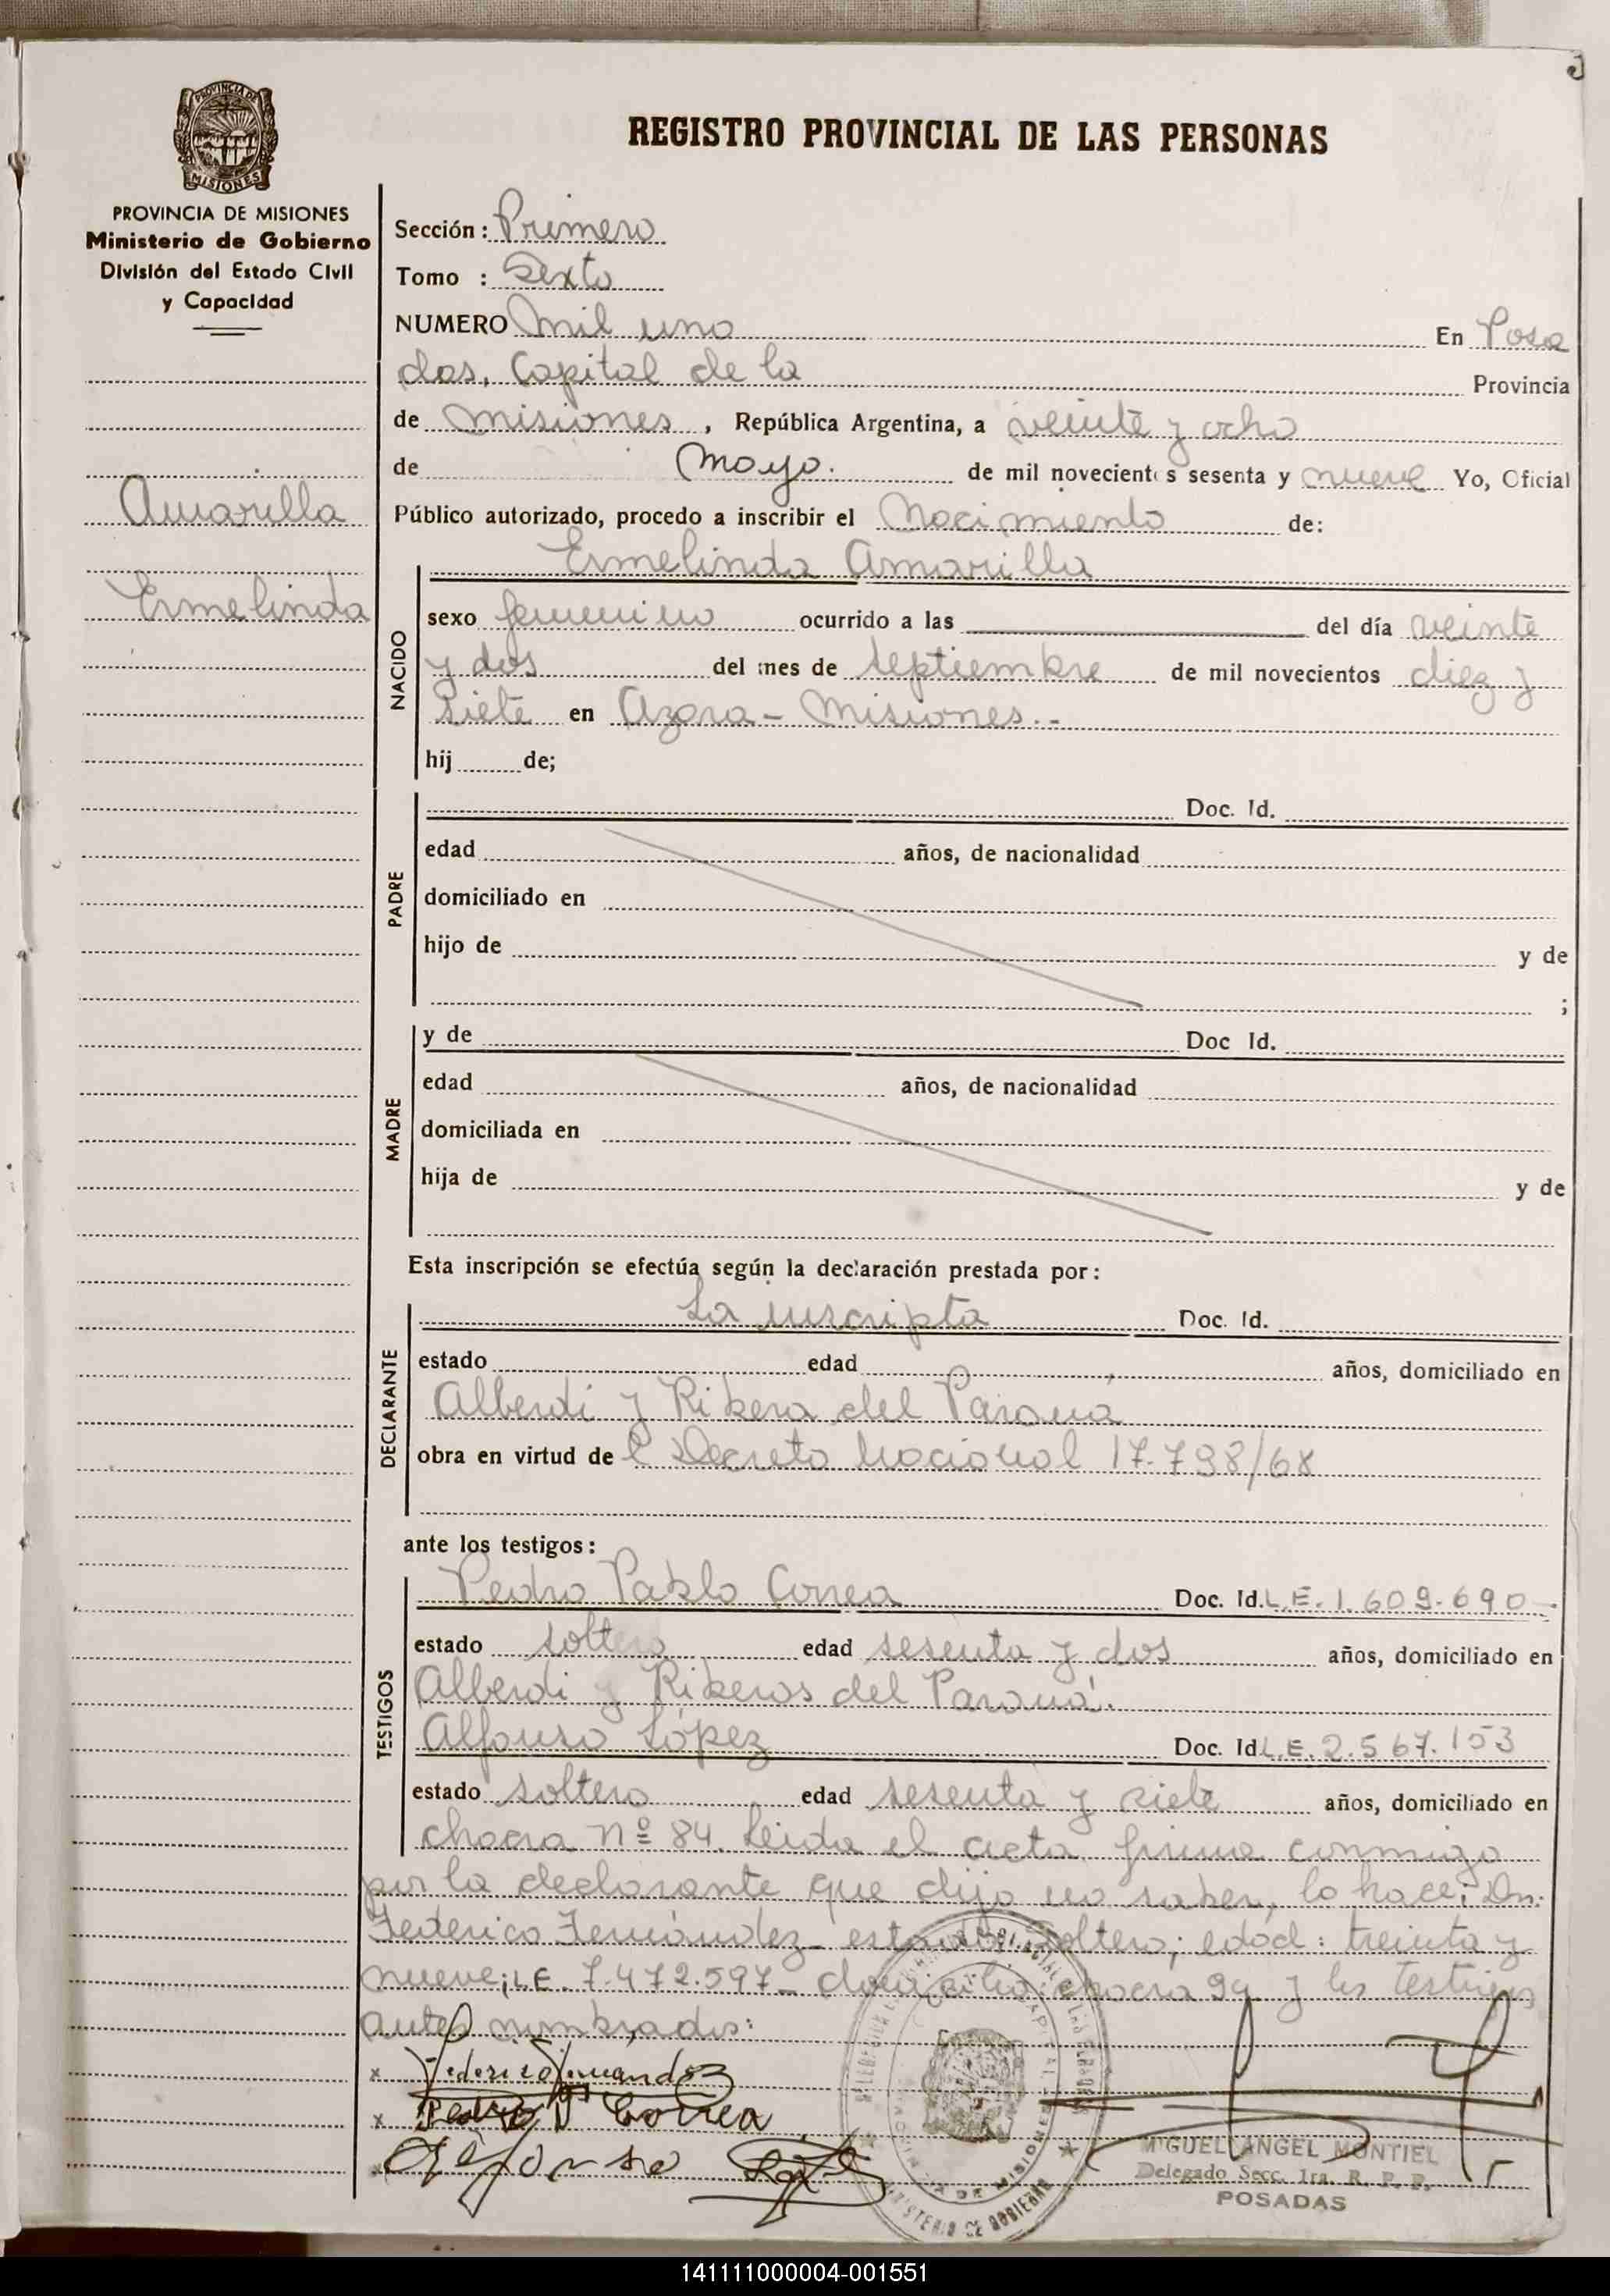 PROVINCIA DE
MISIONES
REGISTRO PROVINCIAL DE LAS PERSONAS
PROVINCIA DE MISIONES
Ministerio de Gobierno
División del Estado Civil
y Capacidad
Sección: Primera
Tomo : Sexto
NUMERO Mil uno En Posa
das, Capital de la Provincia
de Misiones, República Argentina, a veinte y ocho
de Mayo. de mil novecientos sesenta y nueve Yo, Oficial
Amarilla
Público autorizado, procedo a inscribir el Nacimiento de:
Ermelinda Amarilla
Ermelinda
NACIDO
sexo femenino ocurrido a las del día veinte
y dos del mes de septiembre de mil novecientos diez y
siete en Azara - Misiones.-
hij de;
PADRE
Doc. Id.
edad años, de nacionalidad
domiciliado en
hijo de y de
;
MADRE
y de Doc Id.
edad años, de nacionalidad
domiciliada en
hija de y de
Esta inscripción se efectúa según la declaración prestada por:
DECLARANTE
La inscripta Doc. Id.
estado edad años, domiciliado en
Alberdi y Ribera del Paraná
obra en virtud de l Decreto Nacional 17.798/68
ante los testigos:
TESTIGOS
Pedro Pablo Correa Doc. Id. L.E. 1.609.690-
estado soltero edad sesenta y dos años, domiciliado en
Alberdi y Riberas del Paraná.
Alfonso López Doc. Id. L.E. 2.567.153
estado soltero edad sesenta y siete años, domiciliado en
chacra Nº 84. Leida el acta, firma conmigo
por la declarante que dijo no saber, lo hace: Dn:
Federico Fernández - estado: soltero; edad: treinta y
nueve; L.E. 7.472.597 - domicilio: chacra 94 y los testigos
antes nombrados:
x Federico Fernandez
x Pedro P Correa
x Alfonso
MINISTERIO DE GOBIERNO
MIGUEL ANGEL MONTIEL
Delegado Secc. 1ra. R. P. P.
POSADAS
141111000004-001551